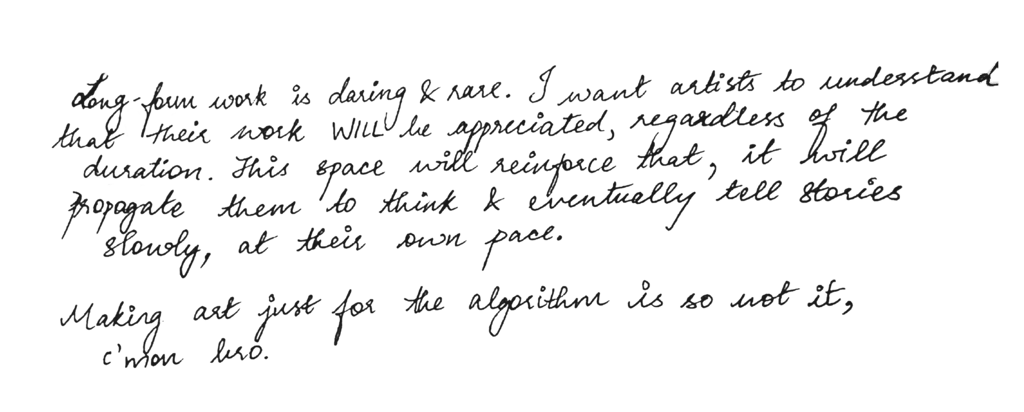 Long-form work is daring & rare. I want artists to understand
that their work WILL be appreciated, regardless of the
duration. This space will reinforce that, it will
propagate them to think & eventually tell stories
slowly, at their own pace.
Making art just for the algorithm is so not it,
c'mon bro.